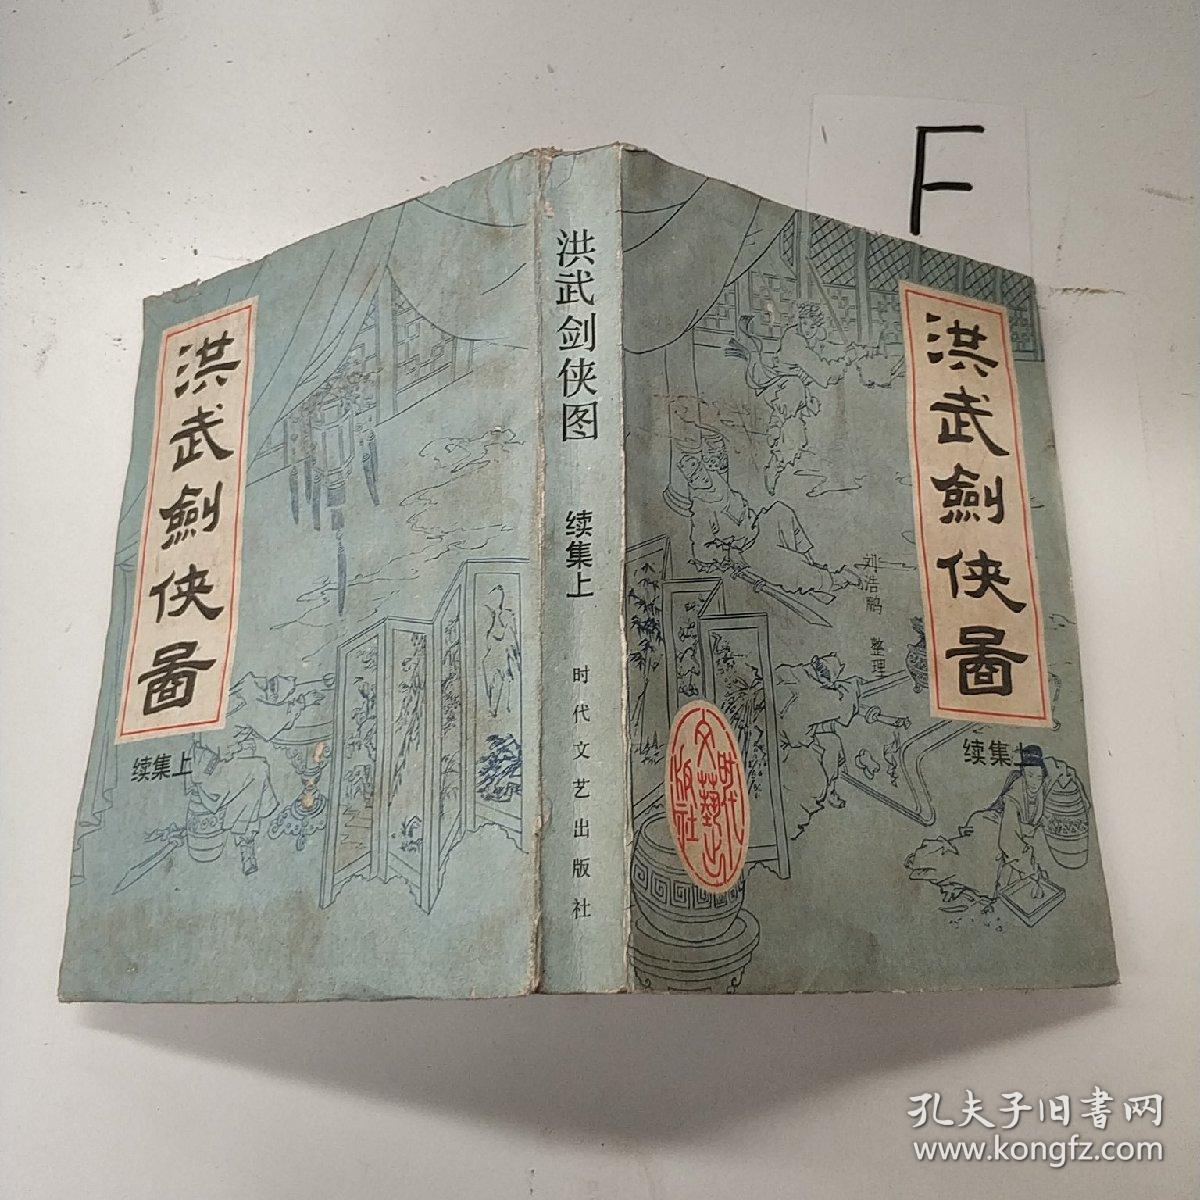 F
洪武劍侠圖
续集上
洪武剑侠图
续集上
时代文艺出版社
洪武劍侠圖
续集上
刘浩鹏 整理
时代文藝出版社
孔夫子旧書网
www.kongfz.com